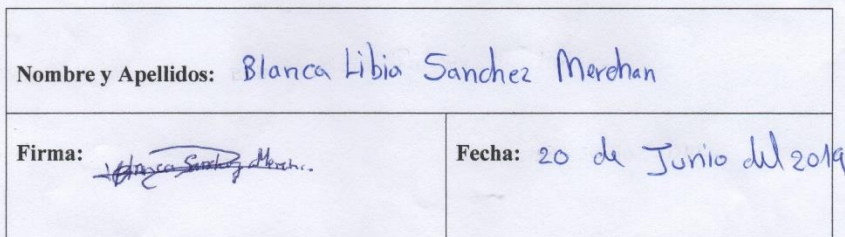 Nombre y Apellidos: Blanca Libia Sanchez Merchan
Firma: Blanca Sanchez Merch.
Fecha: 20 de Junio del 2019